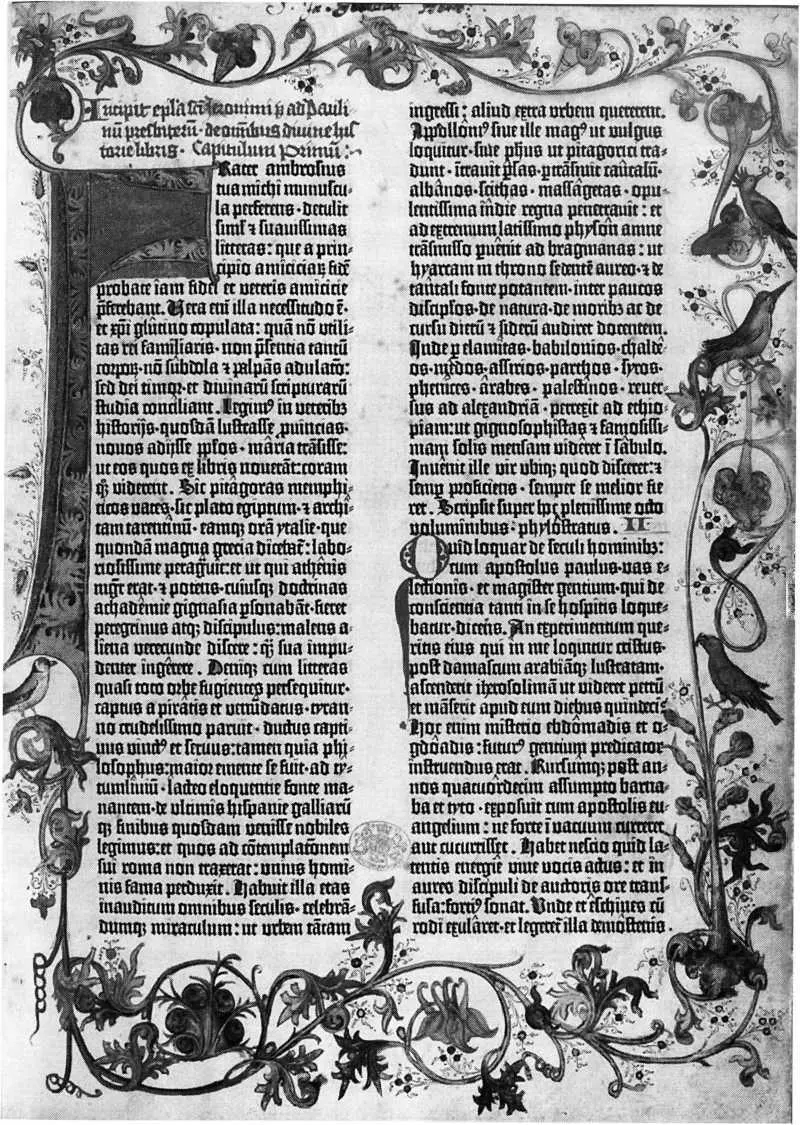 Incipit epl̄a sancti Ieronimi ꝓ ad Pauli
nū presbiterū · de omībus divine his
torie libris · Capitulum Primū :
Frater ambrosius
tua michi munuscu-
la perferens · detulit
siml̄ et suavissimas
litteras : que a prin-
cipio amiciciaꝝ fidē
probate iam fidei et veteris amicicie
p̄ferebant. Vera eni illa necessitudo ē ·
et xp̄i glutino copulata : quā nō utili-
tas rei familiaris · non p̄sentia tantū
corpoꝝ · nō subdola et palpās adulatō :
sed dei timor · et divinarū scripturarū
studia conciliant. Legimꝰ in veteribꝫ
historijs · quosdā lustrasse ꝓuincias ·
novos adijsse pp̄los · maria trāsisse :
ut eos quos ex libris noverāt : coram
q̄ꝫ viderent. Sic pitagoras memphi-
ticos vates · sic plato egiptum · et archi-
tam tarentinū · eamqꝫ orā ytalie · que
quondā magna grecia dicebat̄ : labo-
riosissime peragravit : et ut qui athenis
mgr̄ erat · et potens · cuiusqꝫ doctrinas
achademie gignasia ꝑsonabāt · fieret
peregrinus atqꝫ discipulus : malens a-
liena verecunde discere : qꝫ sua impu-
denter ingerere. Deniqꝫ cum litteras
quasi toto orbe fugientes persequitur ·
captus a piratis et venūdatus · tyran-
no crudelissimo paruit · ductus capti-
uus vinctꝰ et seruus : tamen quia phi-
losophus : maior emente se fuit · ad ty-
tumliuiū · lacteo eloquentie fonte ma-
nantem · de ultimis hispanie galliarū
qꝫ finibus quosdam venisse nobiles
legimus : et quos ad cōtemplatōnem
sui roma non traxerat : unius homi-
nis fama perduxit. Habuit illa etas
inauditum omnibus seculis · celebrā-
dumqꝫ miraculum : ut urbem tātam
ingressi : aliud extra urbem quererent.
Apolloniꝰ sive ille magꝰ ut vulgus
loquitur · sive ph̄us ut pitagorici tra-
dunt · ītravit p̄sas · ꝑtrāsivit caucasū ·
albanos · scithas · massagetas · opu-
lentissima indie regna penetravit : et
ad extremum latissimo physon amne
trāsmisso ꝑvenit ad bragmanas : ut
hyarcam in throno sedentē aureo · et de
tantali fonte potantem · inter paucos
discipl̄os · de natura · de moribꝫ ac de
cursu dierū et siderū audiret docentem.
Inde ꝑ elamitas · babilonios · chalde-
os · medos · assirios · parthos · syros ·
phenices · arabes · palestinos · rever-
sus ad alexandriā · perrexit ad ethio-
piam : ut gignosophistas et famosissi-
mam solis mensam videret ī sabulo.
Invenit ille vir ubiqꝫ quod disceret : et
semꝑ proficiens · semper se melior fie-
ret. Scripsit super hoc plenissime octo
voluminibus · phylostratus. II
Quid loquar de seculi hominibꝫ :
cum apostolus paulus · vas e-
lectionis · et magister gentium · qui de
conscientia tanti in se hospitis loque-
batur · dicens. An experimentum que-
ritis eius qui in me loquitur cristus ·
post damascum arabiāqꝫ lustratam ·
ascenderit iherosolimā ut videret petrū
et māserit apud eum diebus quindecī ·
Hoc enim misterio ebdomadis et o-
gdoadis : futurꝰ gentium predicator
instruendus erat. Rursūqꝫ post an-
nos quatuordecim assumpto barna-
ba et tyto · exposuit cum apostolis eu-
angelium : ne forte ī vacuum curreret
aut cucurrisset. Habet nescio quid la-
tentis energie vive vocis actus : et in
aures discipuli de auctoris ore trans-
fusa : fortiꝰ sonat. Unde et eschines cū
rodi exularet · et legeret̄ illa demostenis ·